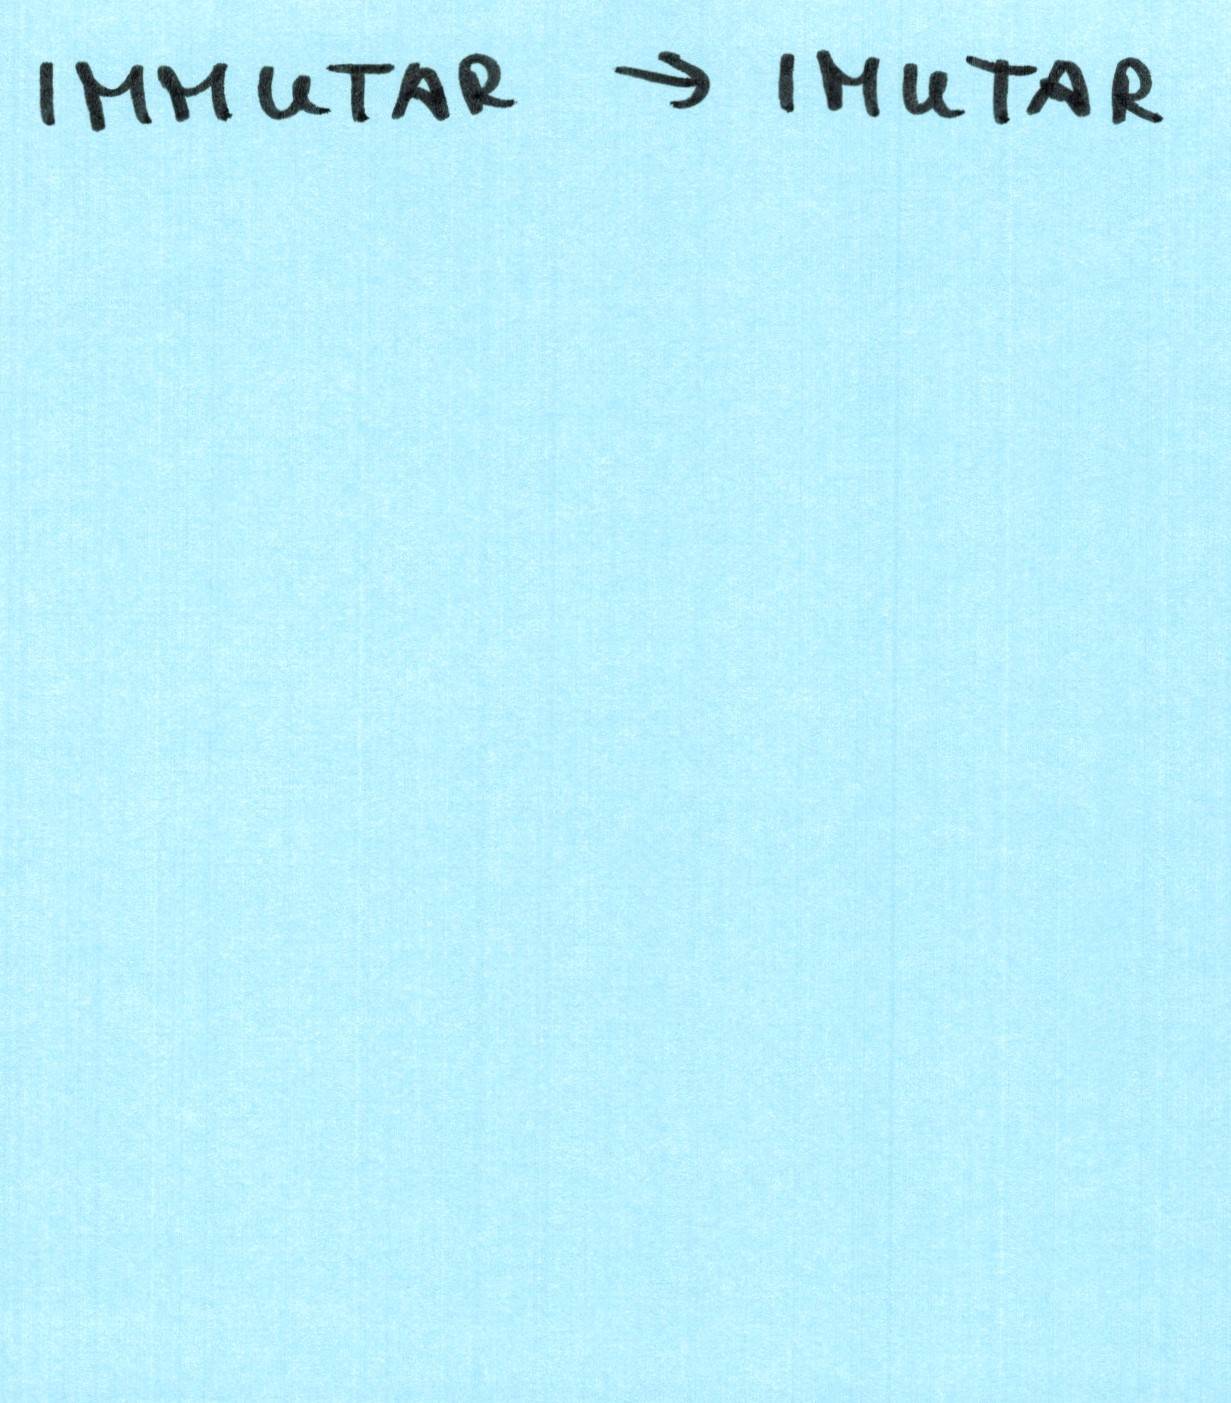 IMMUTAR → IMUTAR